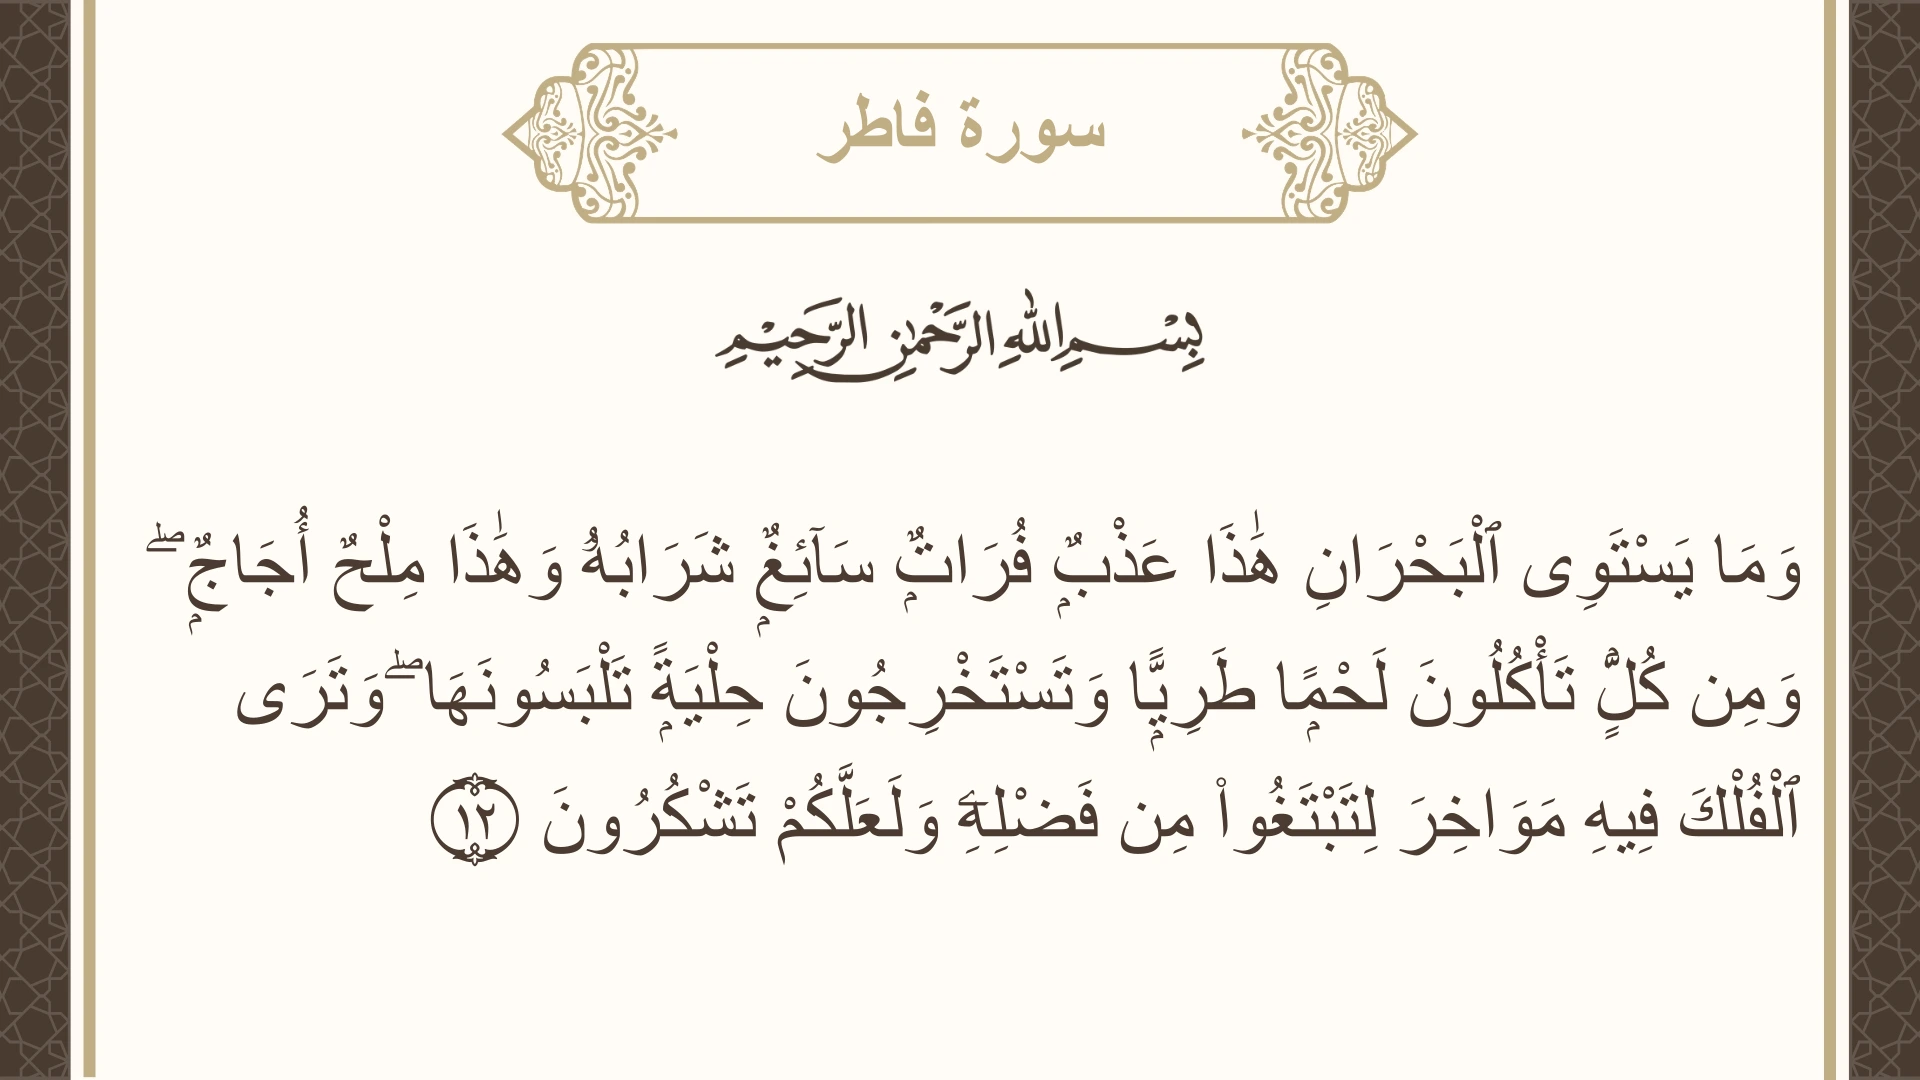 سورة فاطر
بِسْمِ اللهِ الرَّحْمٰنِ الرَّحِيْمِ
وَمَا يَسْتَوِى ٱلْبَحْرَانِ هَٰذَا عَذْبٌۭ فُرَاتٌۭ سَآئِغٌۭ شَرَابُهُۥ وَهَٰذَا مِلْحٌ أُجَاجٌۭ ۖ
وَمِن كُلٍّۢ تَأْكُلُونَ لَحْمًۭا طَرِيًّۭا وَتَسْتَخْرِجُونَ حِلْيَةًۭ تَلْبَسُونَهَا ۖ وَتَرَى
ٱلْفُلْكَ فِيهِ مَوَاخِرَ لِتَبْتَغُوا۟ مِن فَضْلِهِۦ وَلَعَلَّكُمْ تَشْكُرُونَ ١٢